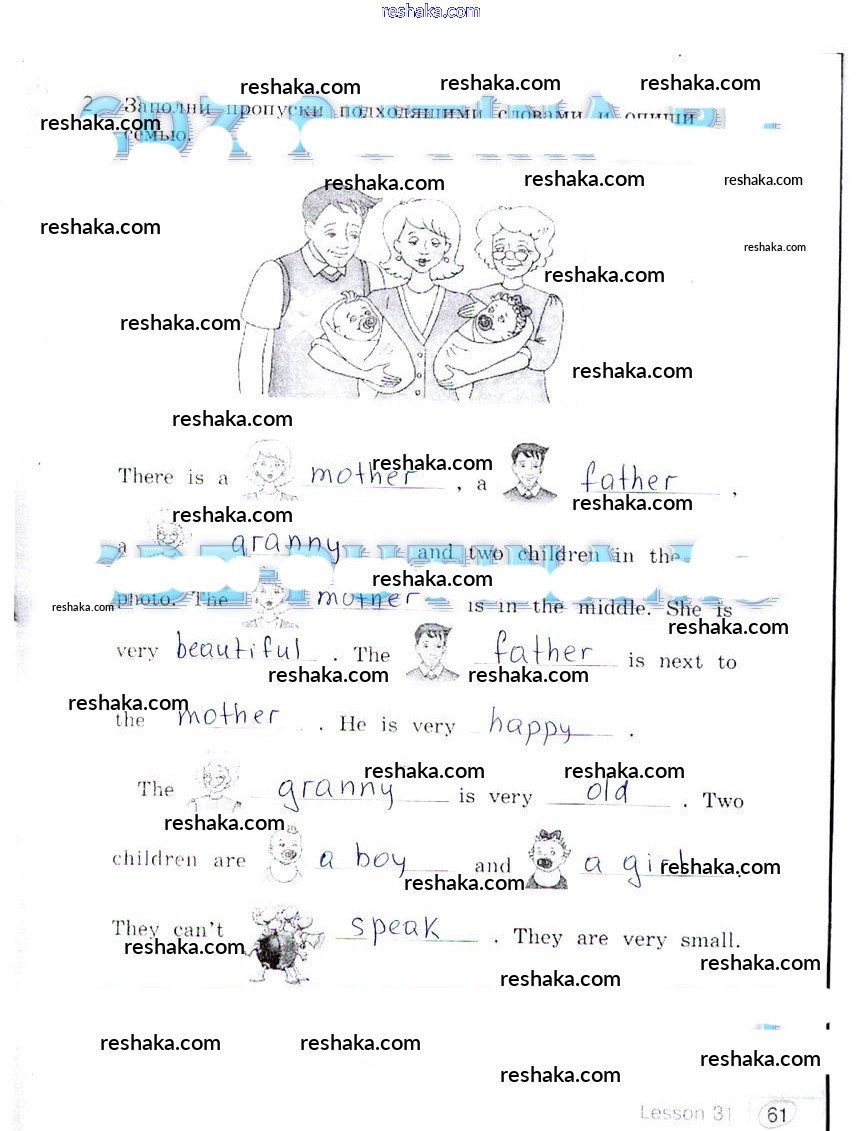 reshaka.com
reshaka.com reshaka.com reshaka.com
2 Заполни пропуски подходящими словами и опиши
reshaka.com
семью.
reshaka.com reshaka.com reshaka.com
reshaka.com
reshaka.com
reshaka.com
reshaka.com
reshaka.com
reshaka.com
There is a mother , a father ,
reshaka.com
reshaka.com
reshaka.com
a granny and two children in the
reshaka.com
photo. The mother is in the middle. She is
reshaka.com
reshaka.com
very beautiful . The father is next to
reshaka.com reshaka.com
reshaka.com
the mother . He is very happy .
reshaka.com reshaka.com
The granny is very old . Two
reshaka.com
children are a boy and a girl .
reshaka.com
reshaka.com
They can't speak . They are very small.
reshaka.com
reshaka.com
reshaka.com
reshaka.com reshaka.com
reshaka.com
reshaka.com
Lesson 31 61